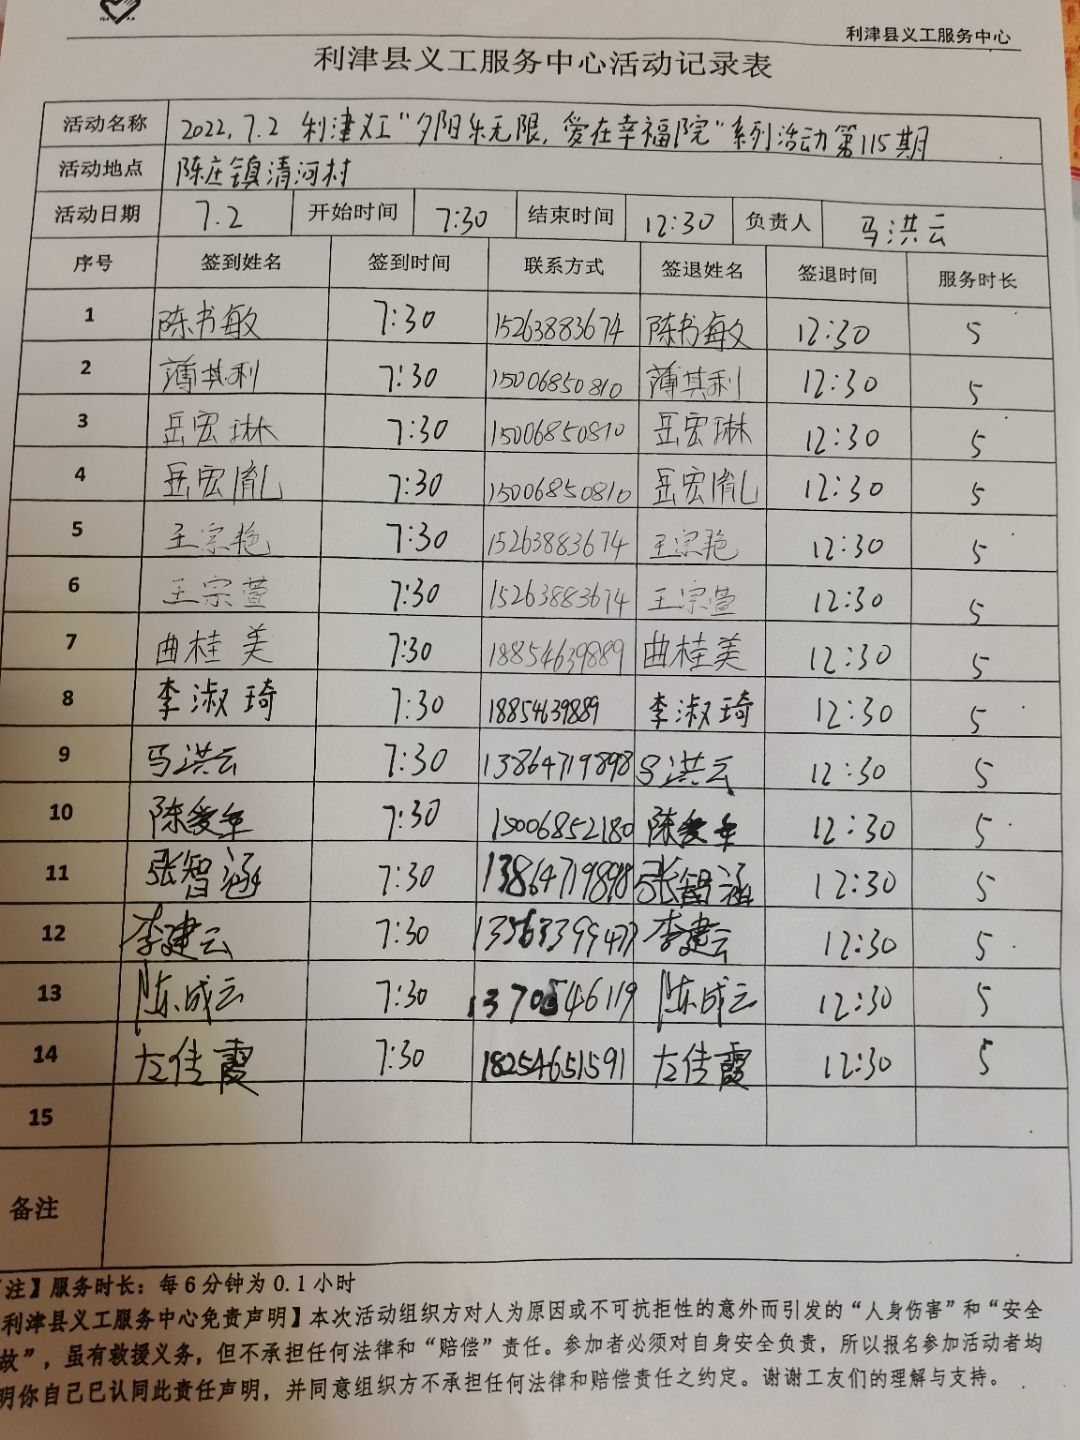 利津县义工服务中心
利津县义工服务中心活动记录表
活动名称 2022.7.2 利津义工“夕阳乐无限,爱在幸福院”系列活动第115期
活动地点 陈庄镇清河村
活动日期 7.2 开始时间 7:30 结束时间 12:30 负责人 马洪云
序号 签到姓名 签到时间 联系方式 签退姓名 签退时间 服务时长
1 陈书敏 7:30 15263883674 陈书敏 12:30 5
2 薄其利 7:30 15006850810 薄其利 12:30 5
3 岳宏琳 7:30 15006850810 岳宏琳 12:30 5
4 岳宏胤 7:30 15006850810 岳宏胤 12:30 5
5 王宗艳 7:30 15263883674 王宗艳 12:30 5
6 王宗萱 7:30 15263883674 王宗萱 12:30 5
7 曲桂美 7:30 18854639889 曲桂美 12:30 5
8 李淑琦 7:30 18854639889 李淑琦 12:30 5
9 马洪云 7:30 13864719898 马洪云 12:30 5
10 陈爱军 7:30 15006852180 陈爱军 12:30 5
11 张智涵 7:30 13864719898 张智涵 12:30 5
12 李建云 7:30 李建云 12:30 5
13 陈成云 7:30 陈成云 12:30 5
14 左佳霞 7:30 18254651591 左佳霞 12:30 5
15
备注
注】服务时长:每6分钟为0.1小时
利津县义工服务中心免责声明】本次活动组织方对人为原因或不可抗拒性的意外而引发的“人身伤害”和“安全
故”,虽有救援义务,但不承担任何法律和“赔偿”责任。参加者必须对自身安全负责,所以报名参加活动者均
明你自己已认同此责任声明,并同意组织方不承担任何法律和赔偿责任之约定。谢谢工友们的理解与支持。